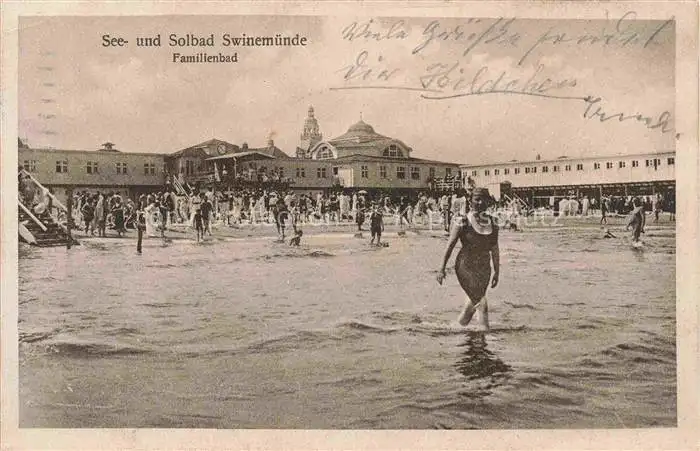 See- und Solbad Swinemünde
Familienbad
Viele Grüße
die Hildchen